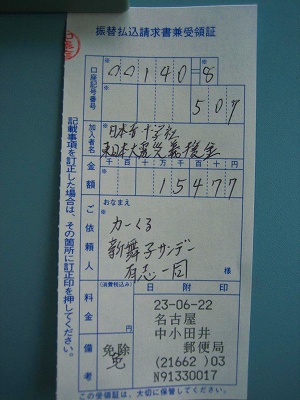 振替払込請求書兼受領証
口座記号番号
00140-8
507
加入者名
日本赤十字社
東日本大震災義援金
金額
千百十万千百十円
15477
ご依頼人
おなまえ
カーくる
新舞子サンデー
有志一同
様
料金
(消費税込み)
日附印
23-06-22
名古屋
中小田井
郵便局
(21662)03
N91330017
備考
免除
この受領証は、大切に保管してください。
記載事項を訂正した場合は、その箇所に訂正印を押してください。